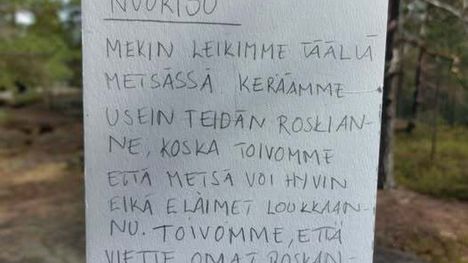 NUORISO
MEKIN LEIKIMME TÄÄLLÄ
METSÄSSÄ KERÄÄMME
USEIN TEIDÄN ROSKIAN-
NE, KOSKA TOIVOMME
ETTÄ METSÄ VOI HYVIN
EIKÄ ELÄIMET LOUKKAAN-
NU. TOIVOMME, ETTÄ
VIETTE OMAT ROSKAN-